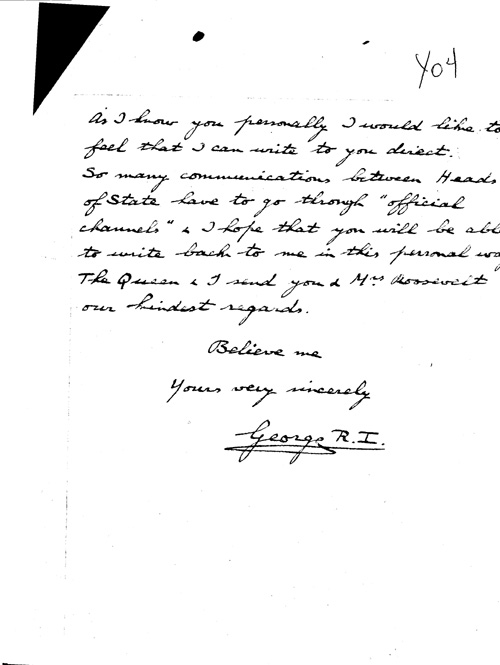 Y04
As I know you personally I would like to
feel that I can write to you direct.
So many communications between Heads
of State have to go through "official
channels" & I hope that you will be abl
to write back to me in this personal wa
The Queen & I send you & Mrs Roosevelt
our kindest regards.
Believe me
Yours very sincerely
George R.I.